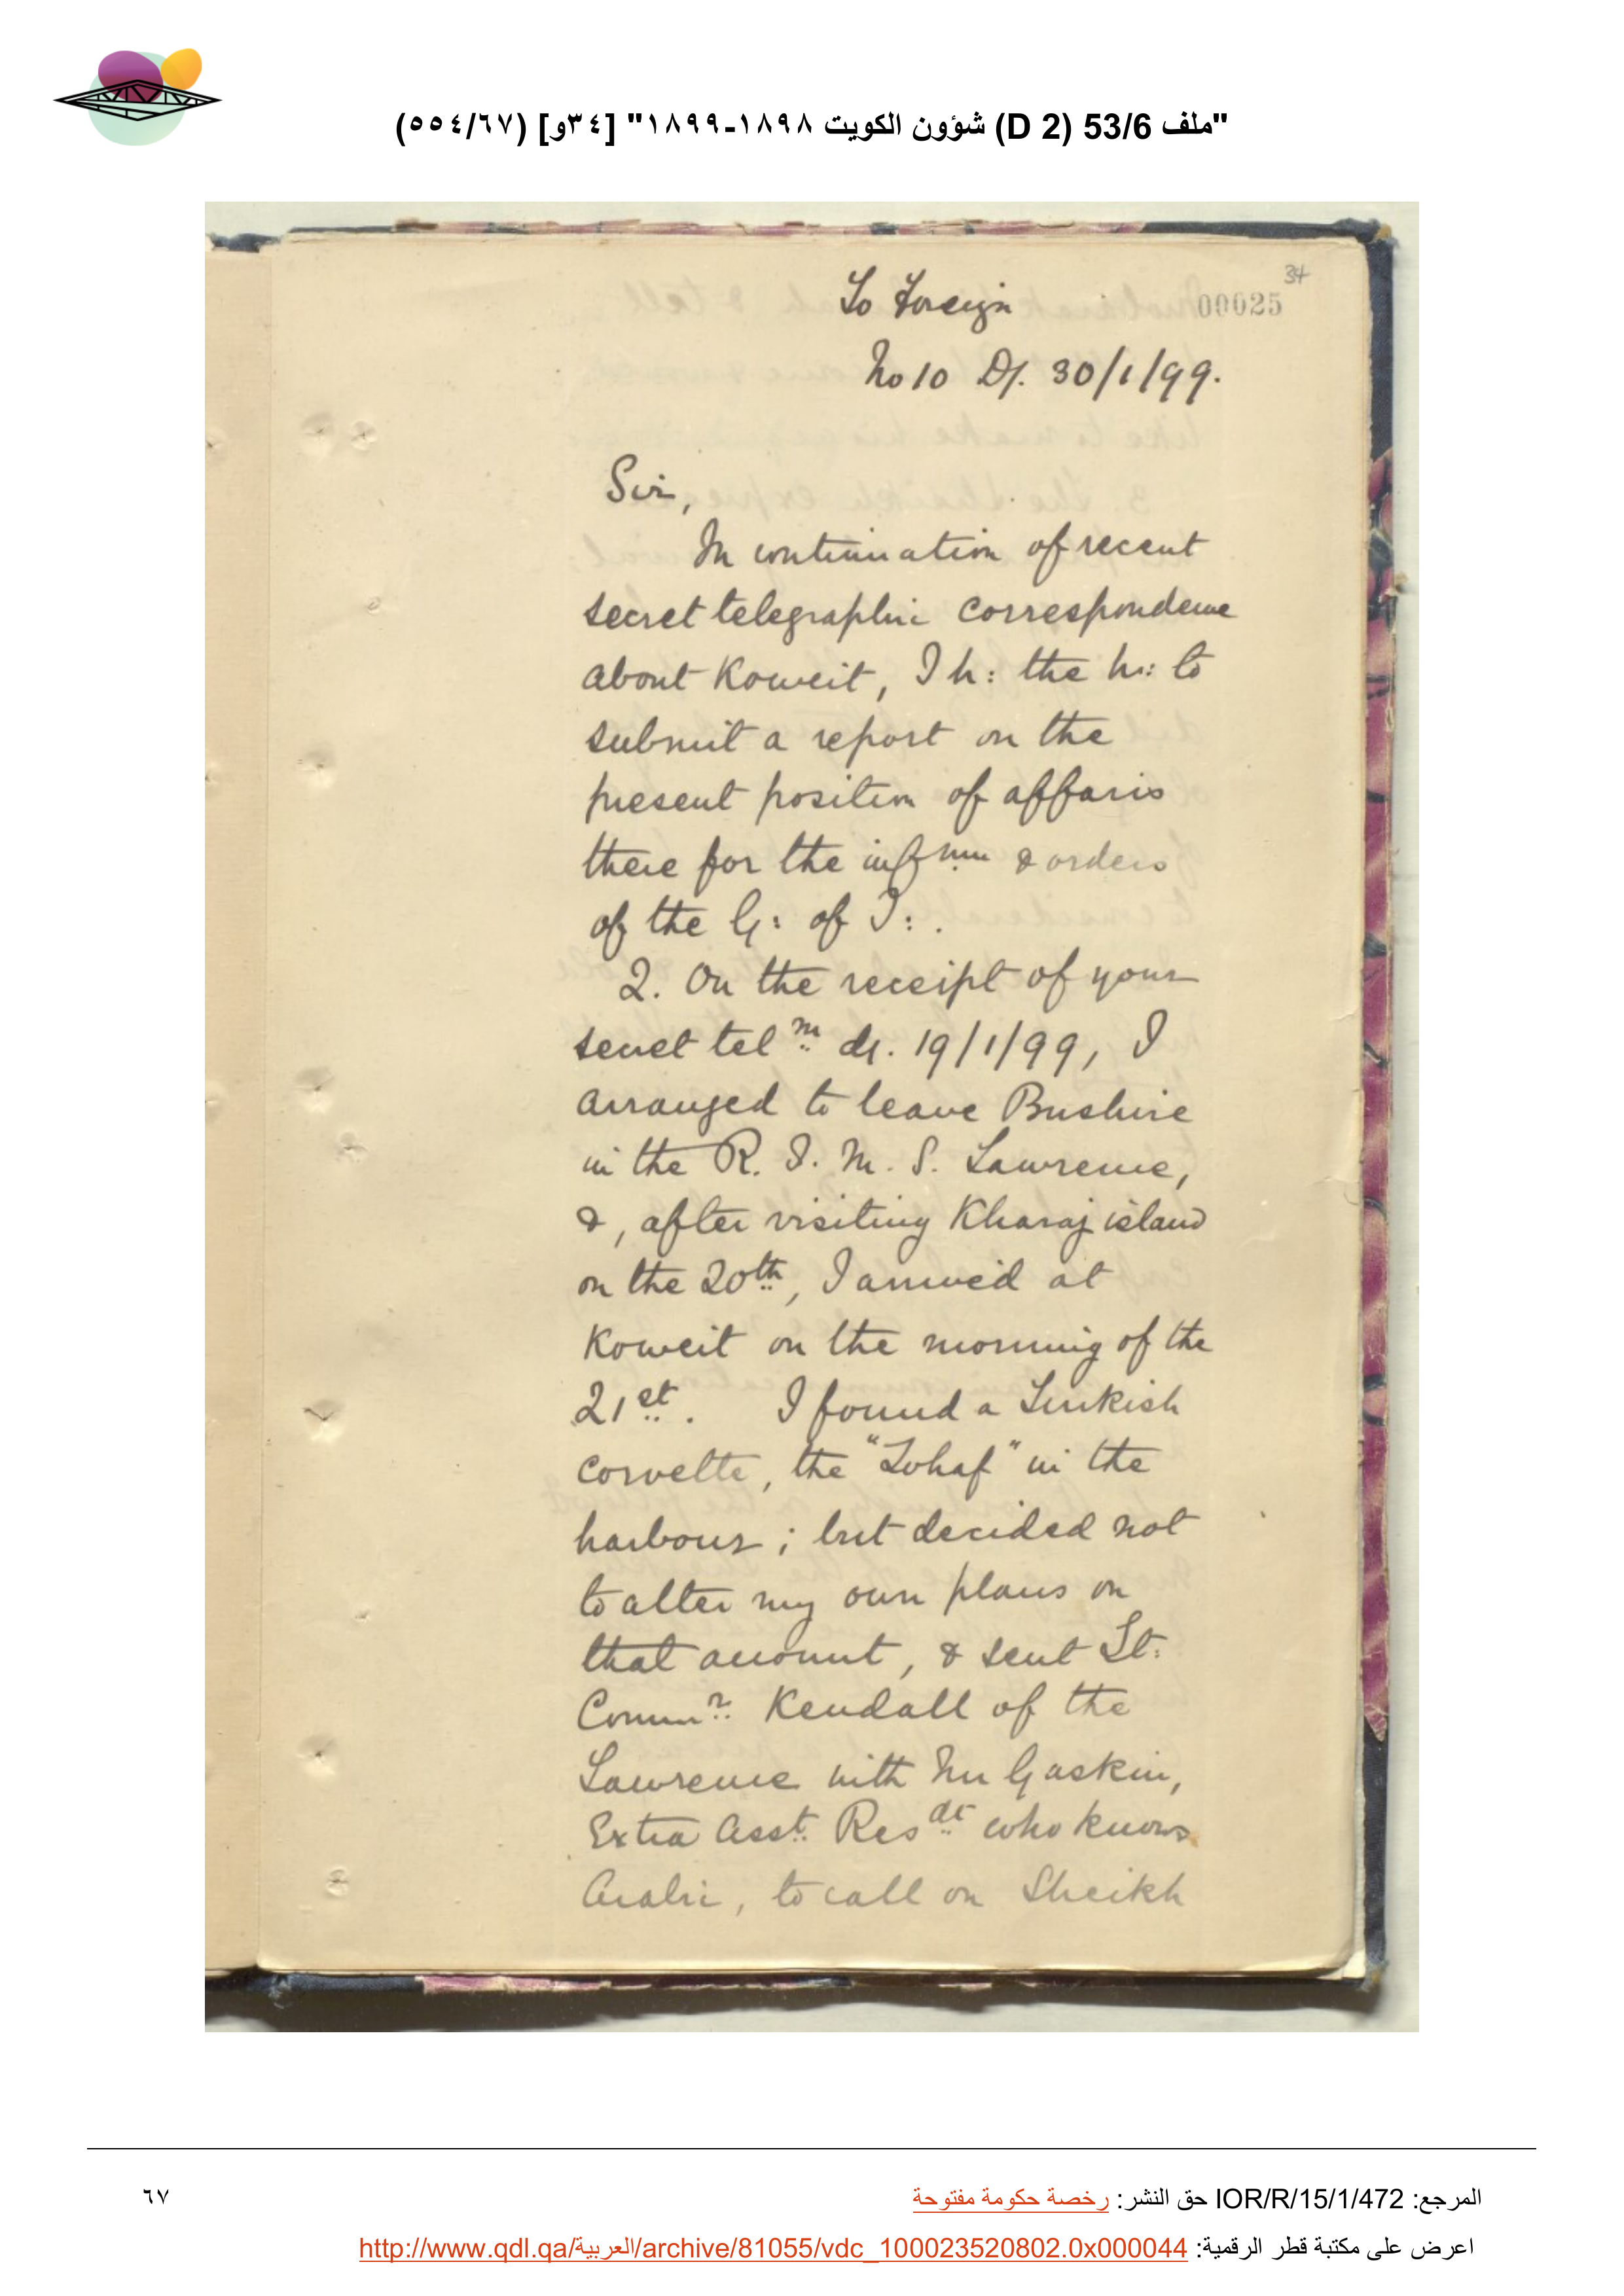 "ملف 53/6 (D 2) شؤون الكويت ١٨٩٨-١٨٩٩" [٣٤و] (٥٥٤/٦٧)
34
To Foreign
00025
No 10 D/. 30/1/99.
Sir,
In continuation of recent
secret telegraphic correspondence
about Koweit, I h: the h: to
submit a report on the
present position of affairs
there for the infmn & orders
of the G: of I: .
2. On the receipt of your
secret telm d/. 19/1/99, I
arranged to leave Bushire
in the R. I. M. S. Lawrence,
&, after visiting Kharaj island
on the 20th, I arrived at
Koweit on the morning of the
21st. I found a Turkish
corvette, the "Zohaf" in the
harbour; but decided not
to alter my own plans on
that account, & sent Lt:
Commr. Kendall of the
Lawrence with Mr Gaskin,
Extra Asst. Resdt who knows
Arabic, to call on Sheikh
المرجع: IOR/R/15/1/472 حق النشر: رخصة حكومة مفتوحة
٦٧
اعرض على مكتبة قطر الرقمية: http://www.qdl.qa/العربية/archive/81055/vdc_100023520802.0x000044